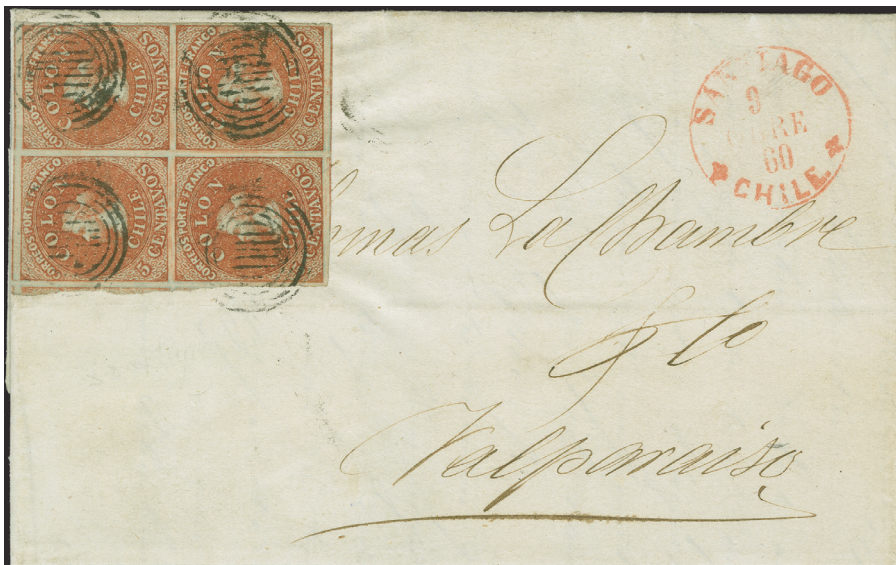 CORREOS PORTE FRANCO
COLON
CHILE
5 CENTAVOS
CORREOS PORTE FRANCO
COLON
CHILE
5 CENTAVOS
CORREOS PORTE FRANCO
COLON
CHILE
5 CENTAVOS
CORREOS PORTE FRANCO
COLON
CHILE
5 CENTAVOS
SANTIAGO
9
60
CHILE.
La Chambre
& Co
Valparaiso